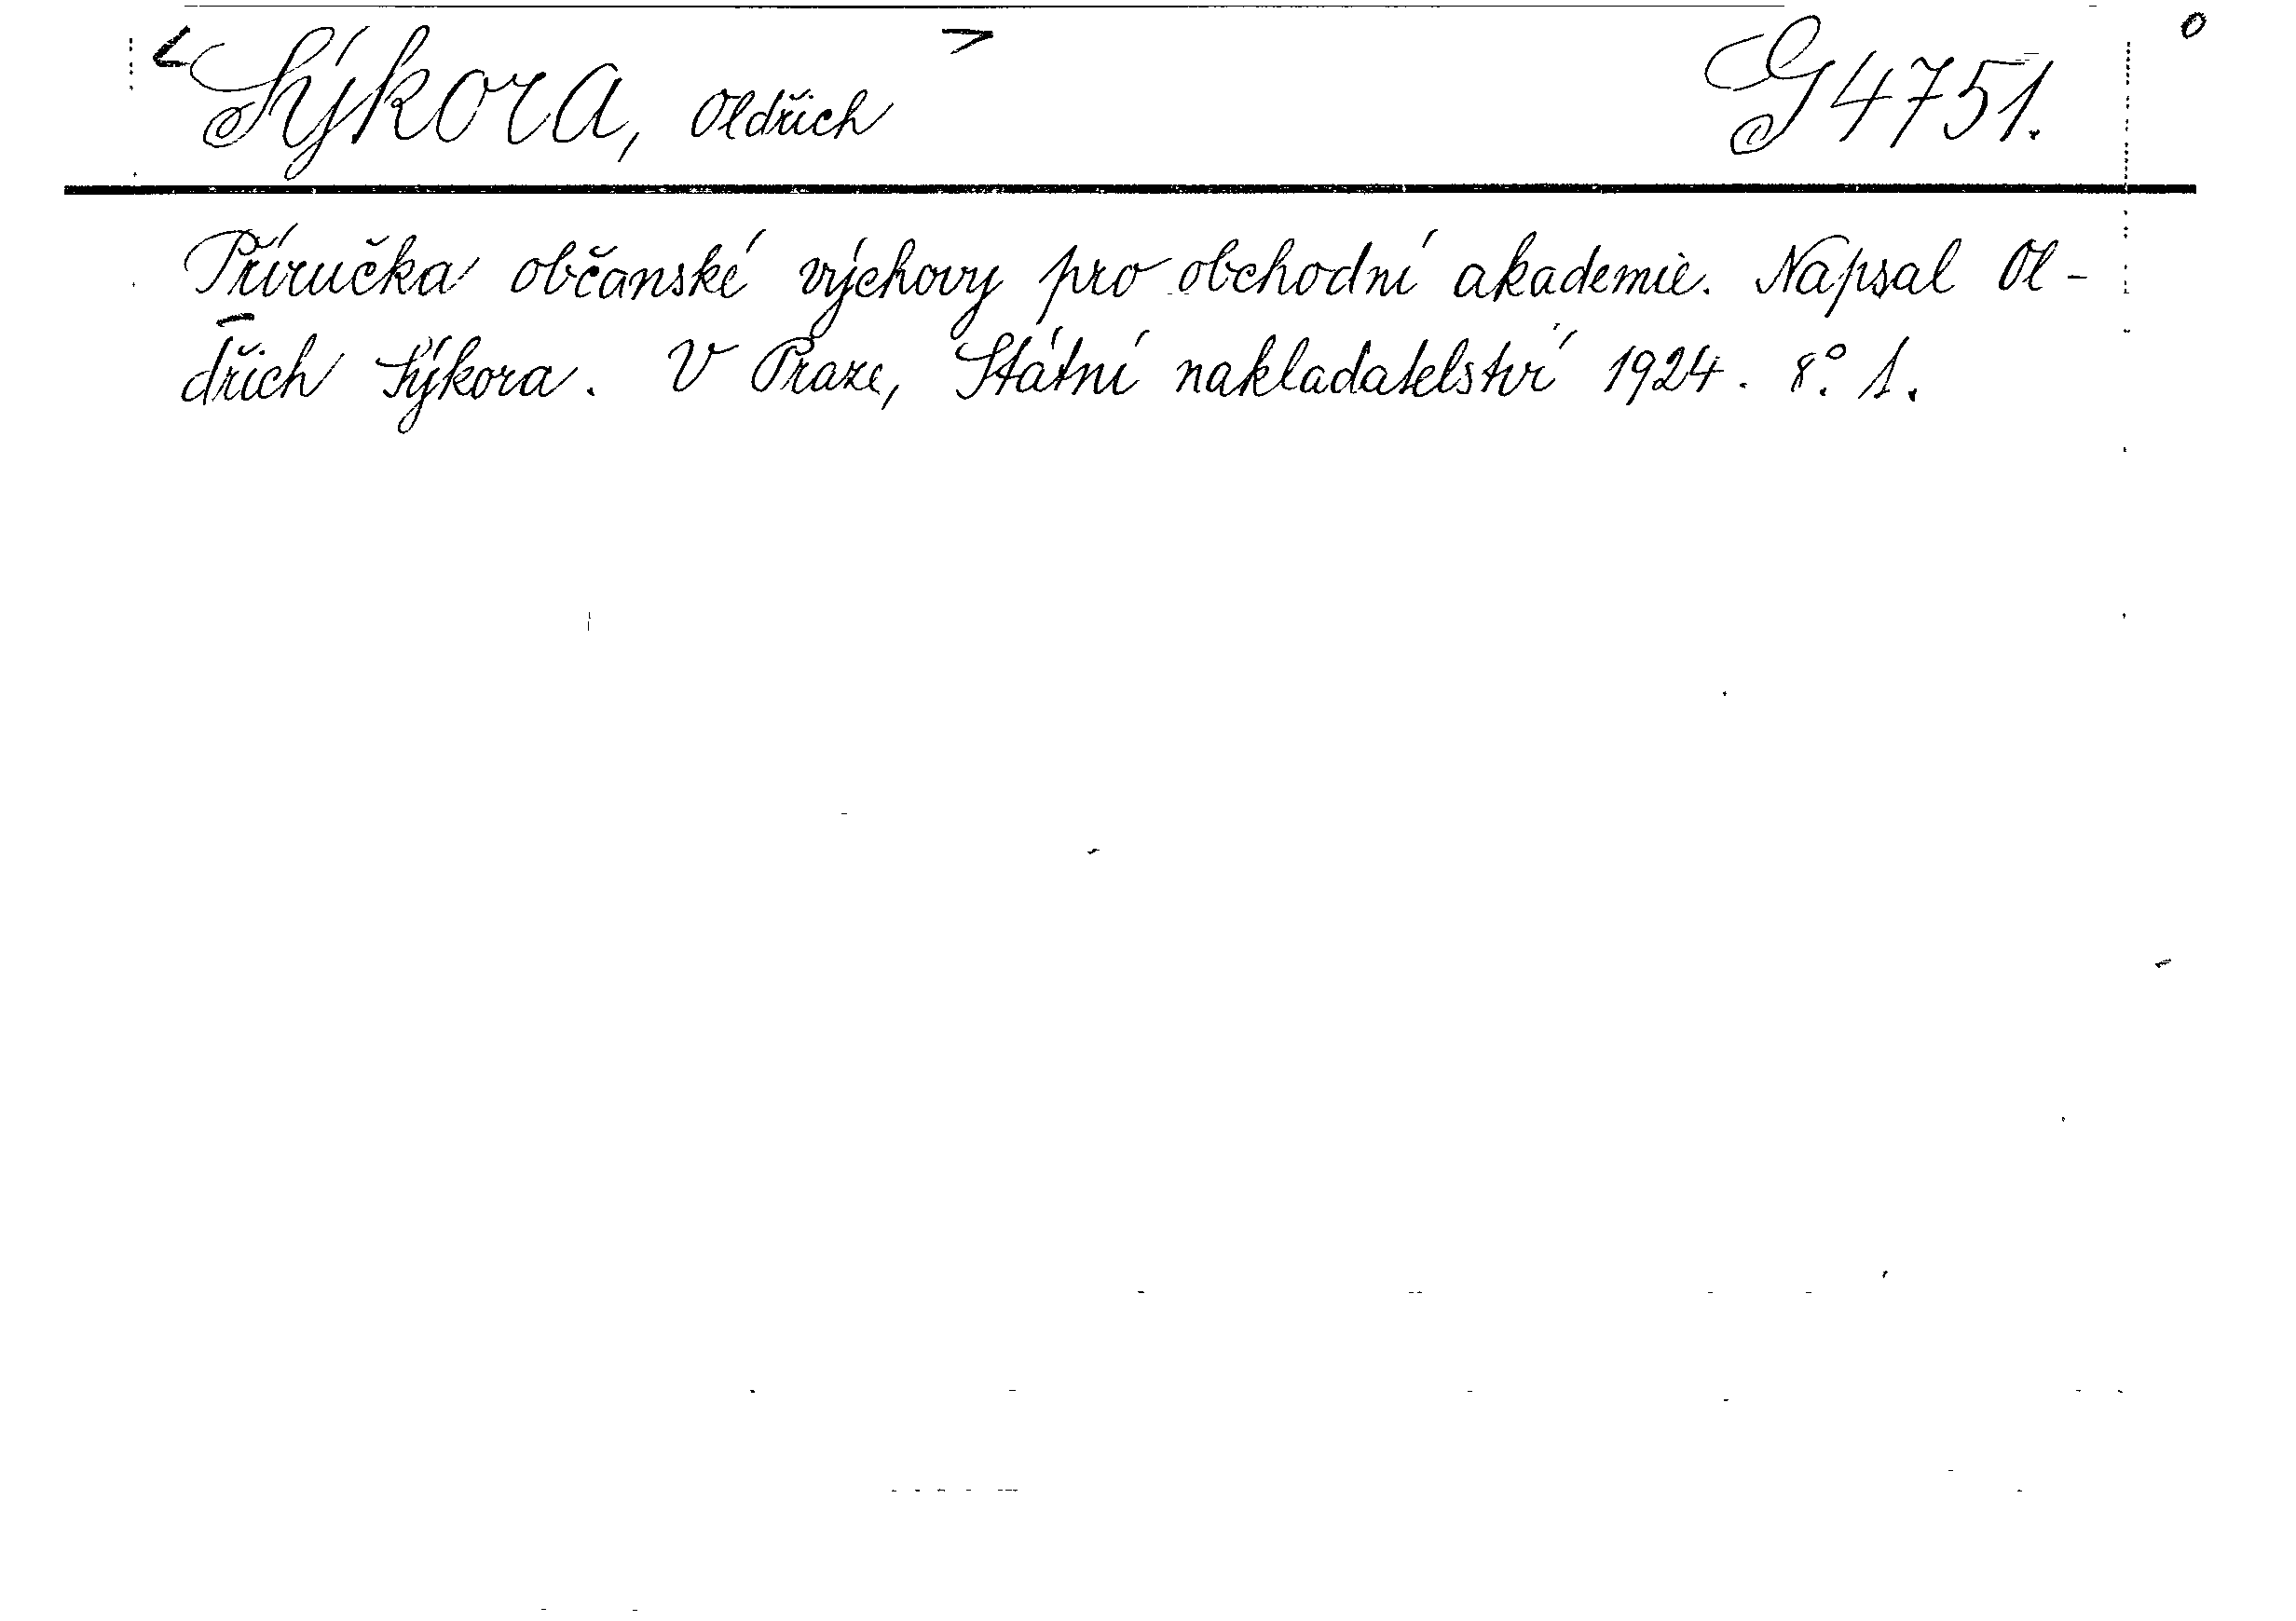 <Sýkora, Oldřich> G 4751.
Příručka občanské výchovy pro obchodní akademie. Napsal Ol-
dřich Sýkora. V Praze, Státní nakladatelství 1924. 8.° 1.